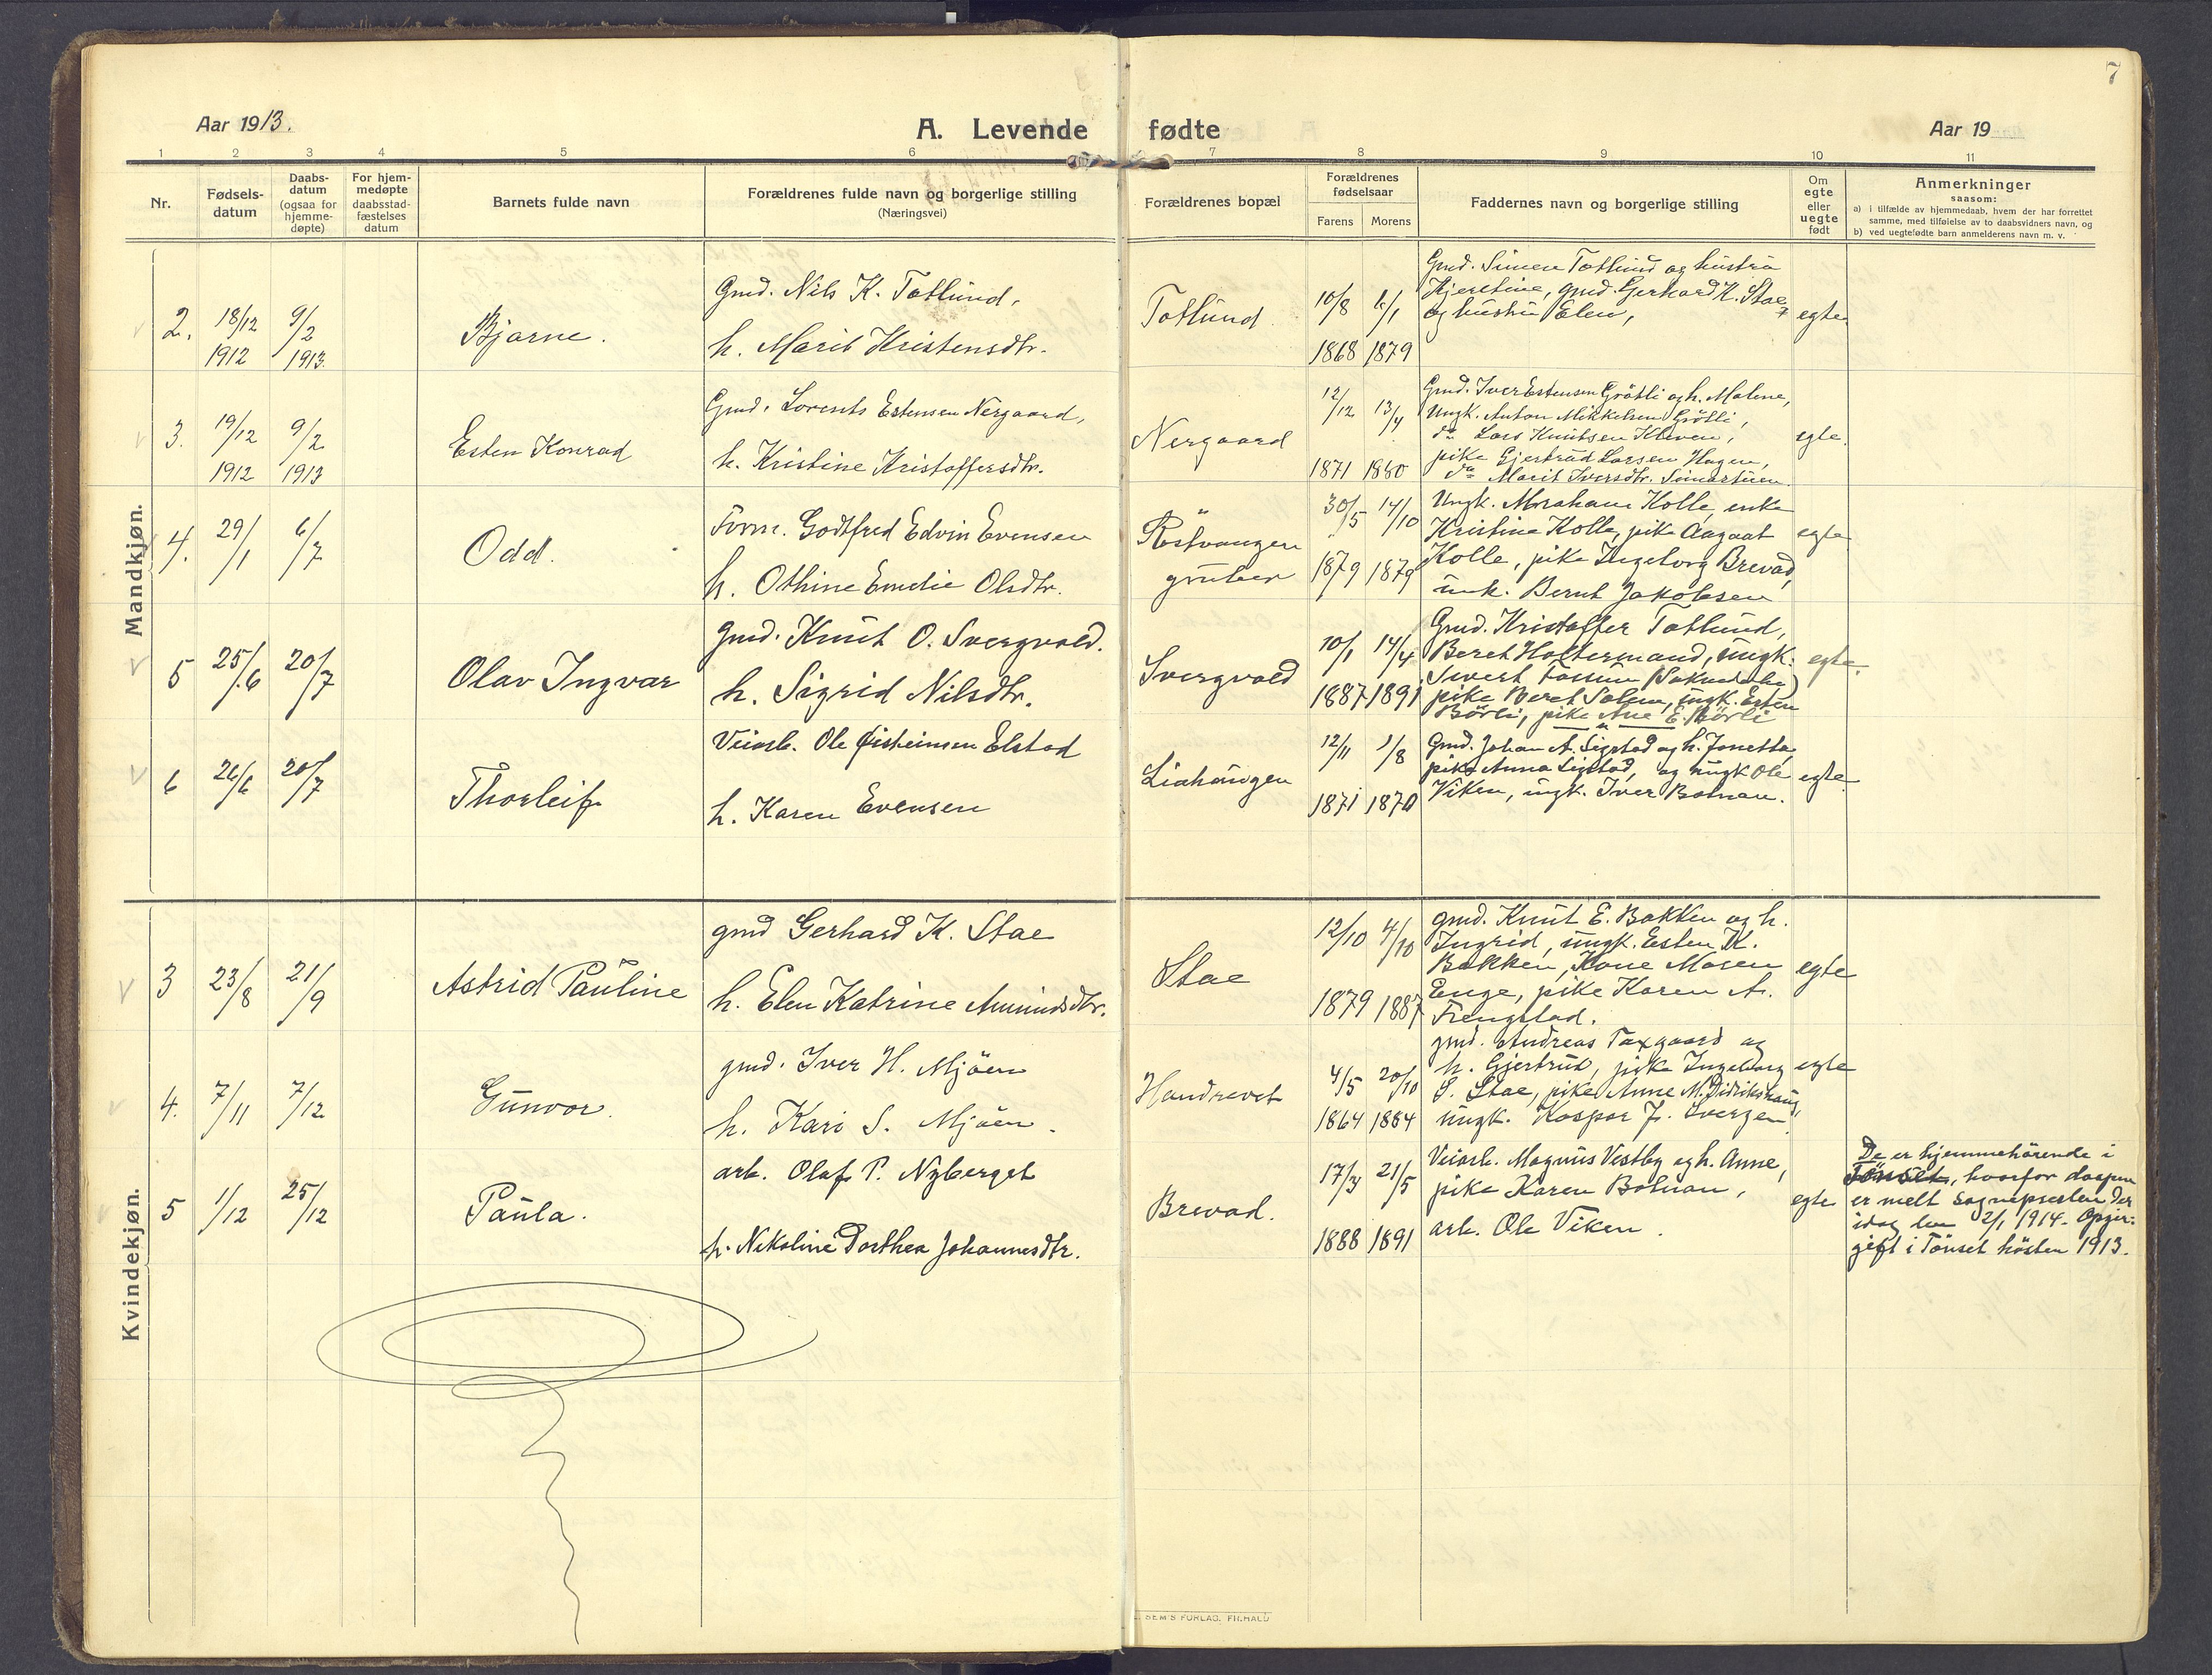 7
Aar 1913.
A. Levende fødte
Aar 19
1 2 3 4 5 6 7 8 9 10 11
Nr.
Fødsels-
datum
Daabs-
datum
(ogsaa for
hjemme-
døpte)
For hjem-
medøpte
daabsstad-
fæstelses
datum
Barnets fulde navn
Forældrenes fulde navn og borgerlige stilling
(Næringsvei)
Forældrenes bopæl
Forældrenes
fødselsaar
Farens Morens
Faddernes navn og borgerlige stilling
Om
egte
eller
uegte
født
Anmerkninger
saasom:
a) i tilfælde av hjemmedaab, hvem der har forrettet
samme, med tilføielse av to daabsvidners navn, og
b) ved uegtefødte barn anmelderens navn m. v.
Mandkjøn.
2. 18/12 1912
9/2 1913.
Bjarne.
Gmd. Nils K. Totlund,
h. Marit Kristensdtr.
Totlund
10/8 1868
6/1 1879
Gmd. Simen Totlund og hustru
Kjerstine, gmd. Gerhard K. Stae
og hustru Elen,
egte
3. 19/12 1912
9/2 1913
Esten Konrad
Gmd. Lorents Estensen Nergaard,
h. Kristine Kristoffersdtr.
Nergaard
12/12 1871
13/4 1880
Gmd. Iver Estensen Grötli og h. Malene,
Ungk. Anton Mikkelsen Grötli,
do Lars Knutsen Kleven,
pike Gjertrud Larsen Hagen,
do Marit Iversdtr.
egte.
4. 29/1
6/7
Odd.
Form. Godtfred Edvin Evensen
h. Othine Emelie Olsdtr.
Röstvangen
gruber
30/5 1879
14/10 1879
Ungk. Abraham Kolle, enke
Kristine Kolle, pike Aagaat
Kolle, pike Ingeborg Brevad,
unk. Bernt Jakobsen
egte
5 25/6
20/7
Olav Ingvar
Gmd. Knut O. Svergvold.
h. Sigrid Nilsdtr.
Svergvold
10/1 1887
14/4 1891
Gmd. Kristoffer Totlund,
Beret Holtermand, ungk.
Sivert Fossum
pike Beret Solem, ungk. Esten
Börli, pike Ane E. Börli
egte.
6 26/6
20/7
Thorleif
Veiarb. Ole Øisteinsen Elstad
h. Karen Evensen
Liahaugen
12/11 1871
1/8 1870
Gmd. Johan A. Sigstad og h. Jonetta,
pike Anna Sigstad, og ungk Ole
Viken, ungk. Iver Botnan.
egte
Kvindekjøn.
3 23/8
21/9
Astrid Pauline
gmd Gerhard K. Stae
h. Elen Katrine Amundsdtr.
Stae
12/10 1879
4/10 1887
gmd. Knut E. Bakken og h.
Ingrid, ungk. Esten K.
Bakken, Kone Maren
Enge, pike Karen A.
Frengstad.
egte
4. 7/11
7/12
Gunvor.
gmd. Iver H. Mjöen
h. Kari S. Mjöen.
Haudrevet
4/5 1864
20/10 1884
gmd. Andreas Taxgaard og
h. Gjertrud, pike Ingeborg
S. Stae, pike Anne M. Didrikshaug,
ungk. Kaspar J.
egte
5 1/12
25/12
Paula.
arb. Olaf P. Nyberget
h. Nikoline Dorthea Johannesdtr.
Brevad.
17/3 1888
21/5 1891
Veiarb. Magnus Vestby og h. Anne,
pike Karen Botnan,
arb. Ole Viken.
egte
De er hjemmehörende i
Tönset, hvorfor daapen
er melt sognepresten der
idag den 2/1 1914.
gift i Tönset hösten 1913.